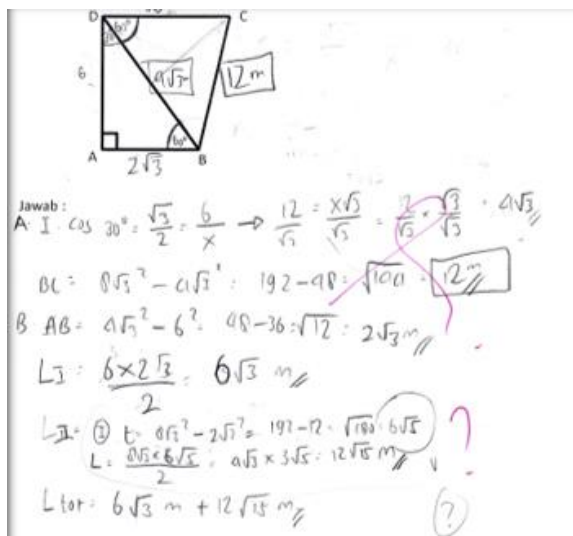 D 60° C
30°
6
4√3
12 m
60°
A B
2√3
Jawab :
A. I. cos 30° = √3/2 = 6/x → 12/√3 = x√3/√3 = 12/√3 × √3/√3 = 4√3
BC = 8√3² - 4√3² = 192 - 48 = √144 = 12 m
B AB = 4√3² - 6² = 48 - 36 = √12 = 2√3 m
LI = 6×2√3/2 = 6√3 m
LII = ① t = 8√3² - 2√3² = 192 - 12 = √180 = 6√5 ?
L = 8√3×6√5/2 = 4√3 × 3√5 = 12√15 m
L tot = 6√3 m + 12√15 m (?)